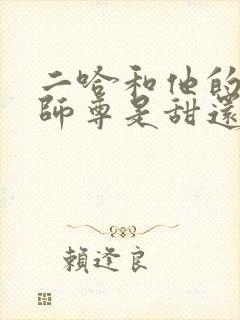 二哈和他的
師尊是甜還
賴逢良